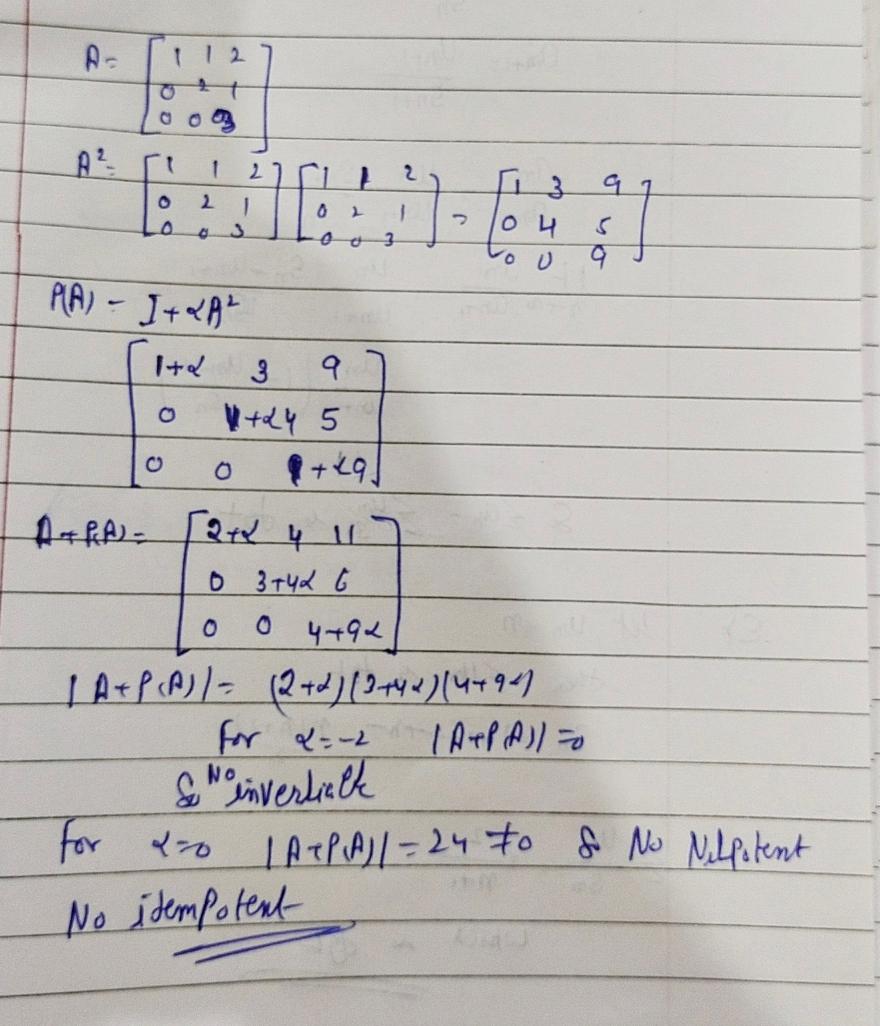 A = [ 1 1 2
0 2 1
0 0 3 ]
A² = [ 1 1 2 ] [ 1 1 2 ] = [ 1 3 9 ]
0 2 1 0 2 1 0 4 5
0 0 3 0 0 3 0 0 9
P(A) = I + αA²
[ 1+α 3 9 ]
0 1+α4 5
0 0 1+α9
A + P(A) = [ 2+α 4 11 ]
0 3+4α 6
0 0 4+9α
|A+P(A)| = (2+α)(3+4α)(4+9α)
For α=-2 |A+P(A)| =0
So No invertiable
For α=0 |A+P(A)| = 24 ≠0 So No Nilpotent
No idempotent